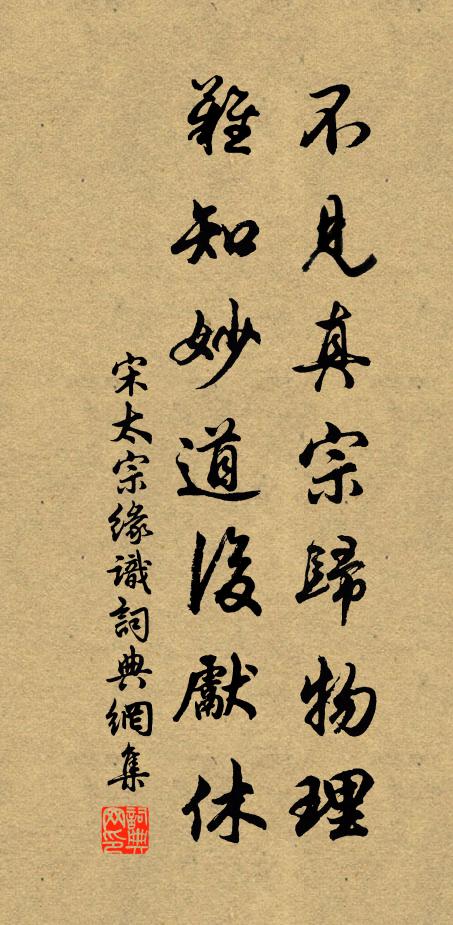 不見真宗歸物理
難知妙道後獻休
宋太宗緣識詞典網集
詞典網印